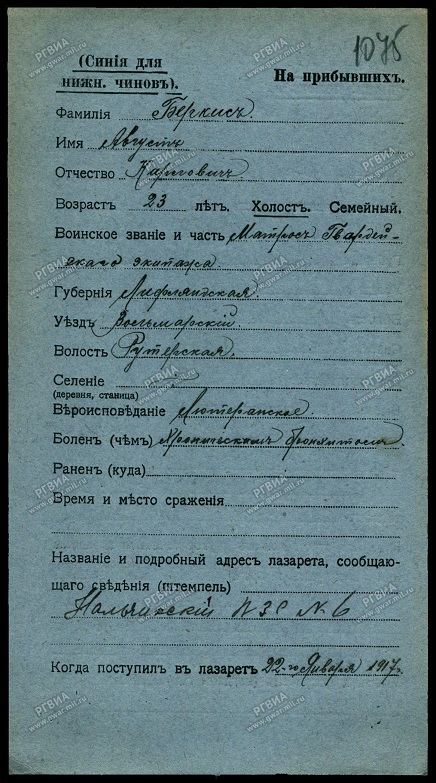 1075
(Синія для
нижн. чиновъ).
На прибывшихъ.
Фамилія Беркисъ
Имя Августъ
Отчество Карловичъ
Возрастъ 23 лѣтъ. Холостъ. Семейный.
Воинское званіе и часть Матросъ Гвардей-
скаго экипажа
Губернія Лифляндская.
Уѣздъ Вольмарскій
Волость Рутерская.
Селеніе
(деревня, станица)
Вѣроисповѣданіе Лютеранское.
Боленъ (чѣмъ) Хроническимъ бронхитомъ.
Раненъ (куда)
Время и мѣсто сраженія
Названіе и подробный адресъ лазарета, сообщаю-
щаго свѣдѣнія (штемпель)
Нальчикскій № 6
Когда поступилъ въ лазаретъ 22-го Января 1917 г.
РГВИА
www.gwar.mil.ru